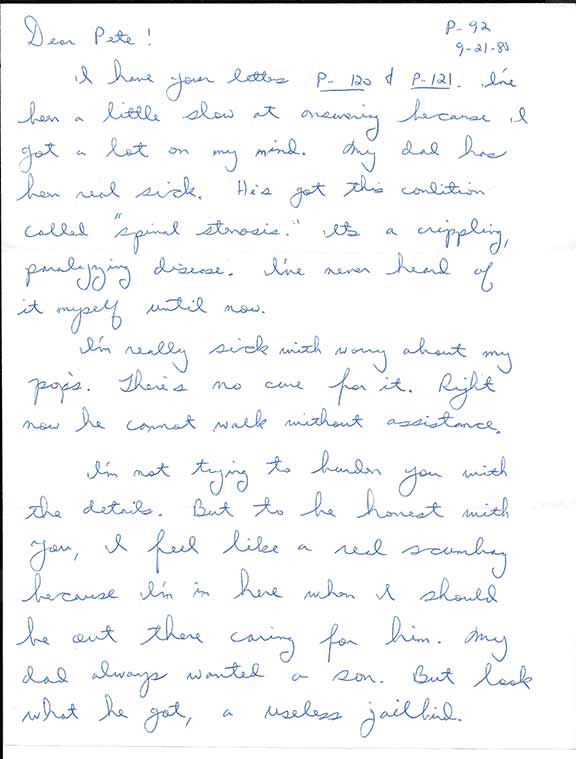 P-92
Dear Pete!
9-21-80
I have your letters P-120 & P-121. I've
ben a little slow at answering because I
got a lot on my mind. My dad has
ben real sick. He's got this condition
called "spinal stenosis." It's a crippling,
paralyzing disease. I've never heard of
it myself until now.
I'm really sick with worry about my
pop's. There's no cure for it. Right
now he cannot walk without assistance.
I'm not trying to burden you with
the details. But to be honest with
you, I feel like a real scumbag
because I'm in here when I should
be out there caring for him. My
dad always wanted a son. But look
what he got, a useless jailbird.